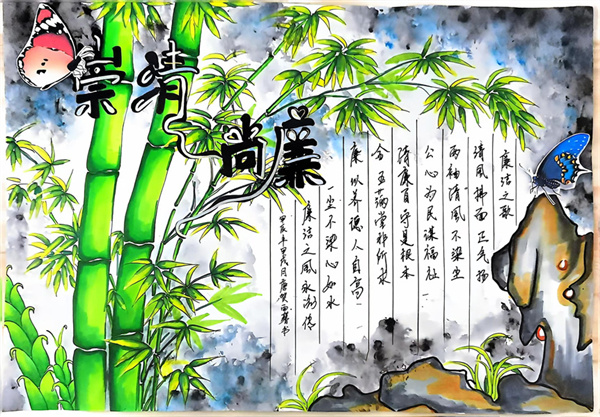 崇清尚廉
廉洁之歌
清风拂面正气扬
两袖清风不染尘
公心为民谋福祉
清廉自守是根本
所求
廉以养德人自高
一尘不染心如水
廉洁之风永流传
甲辰年甲戌月唐贺 书